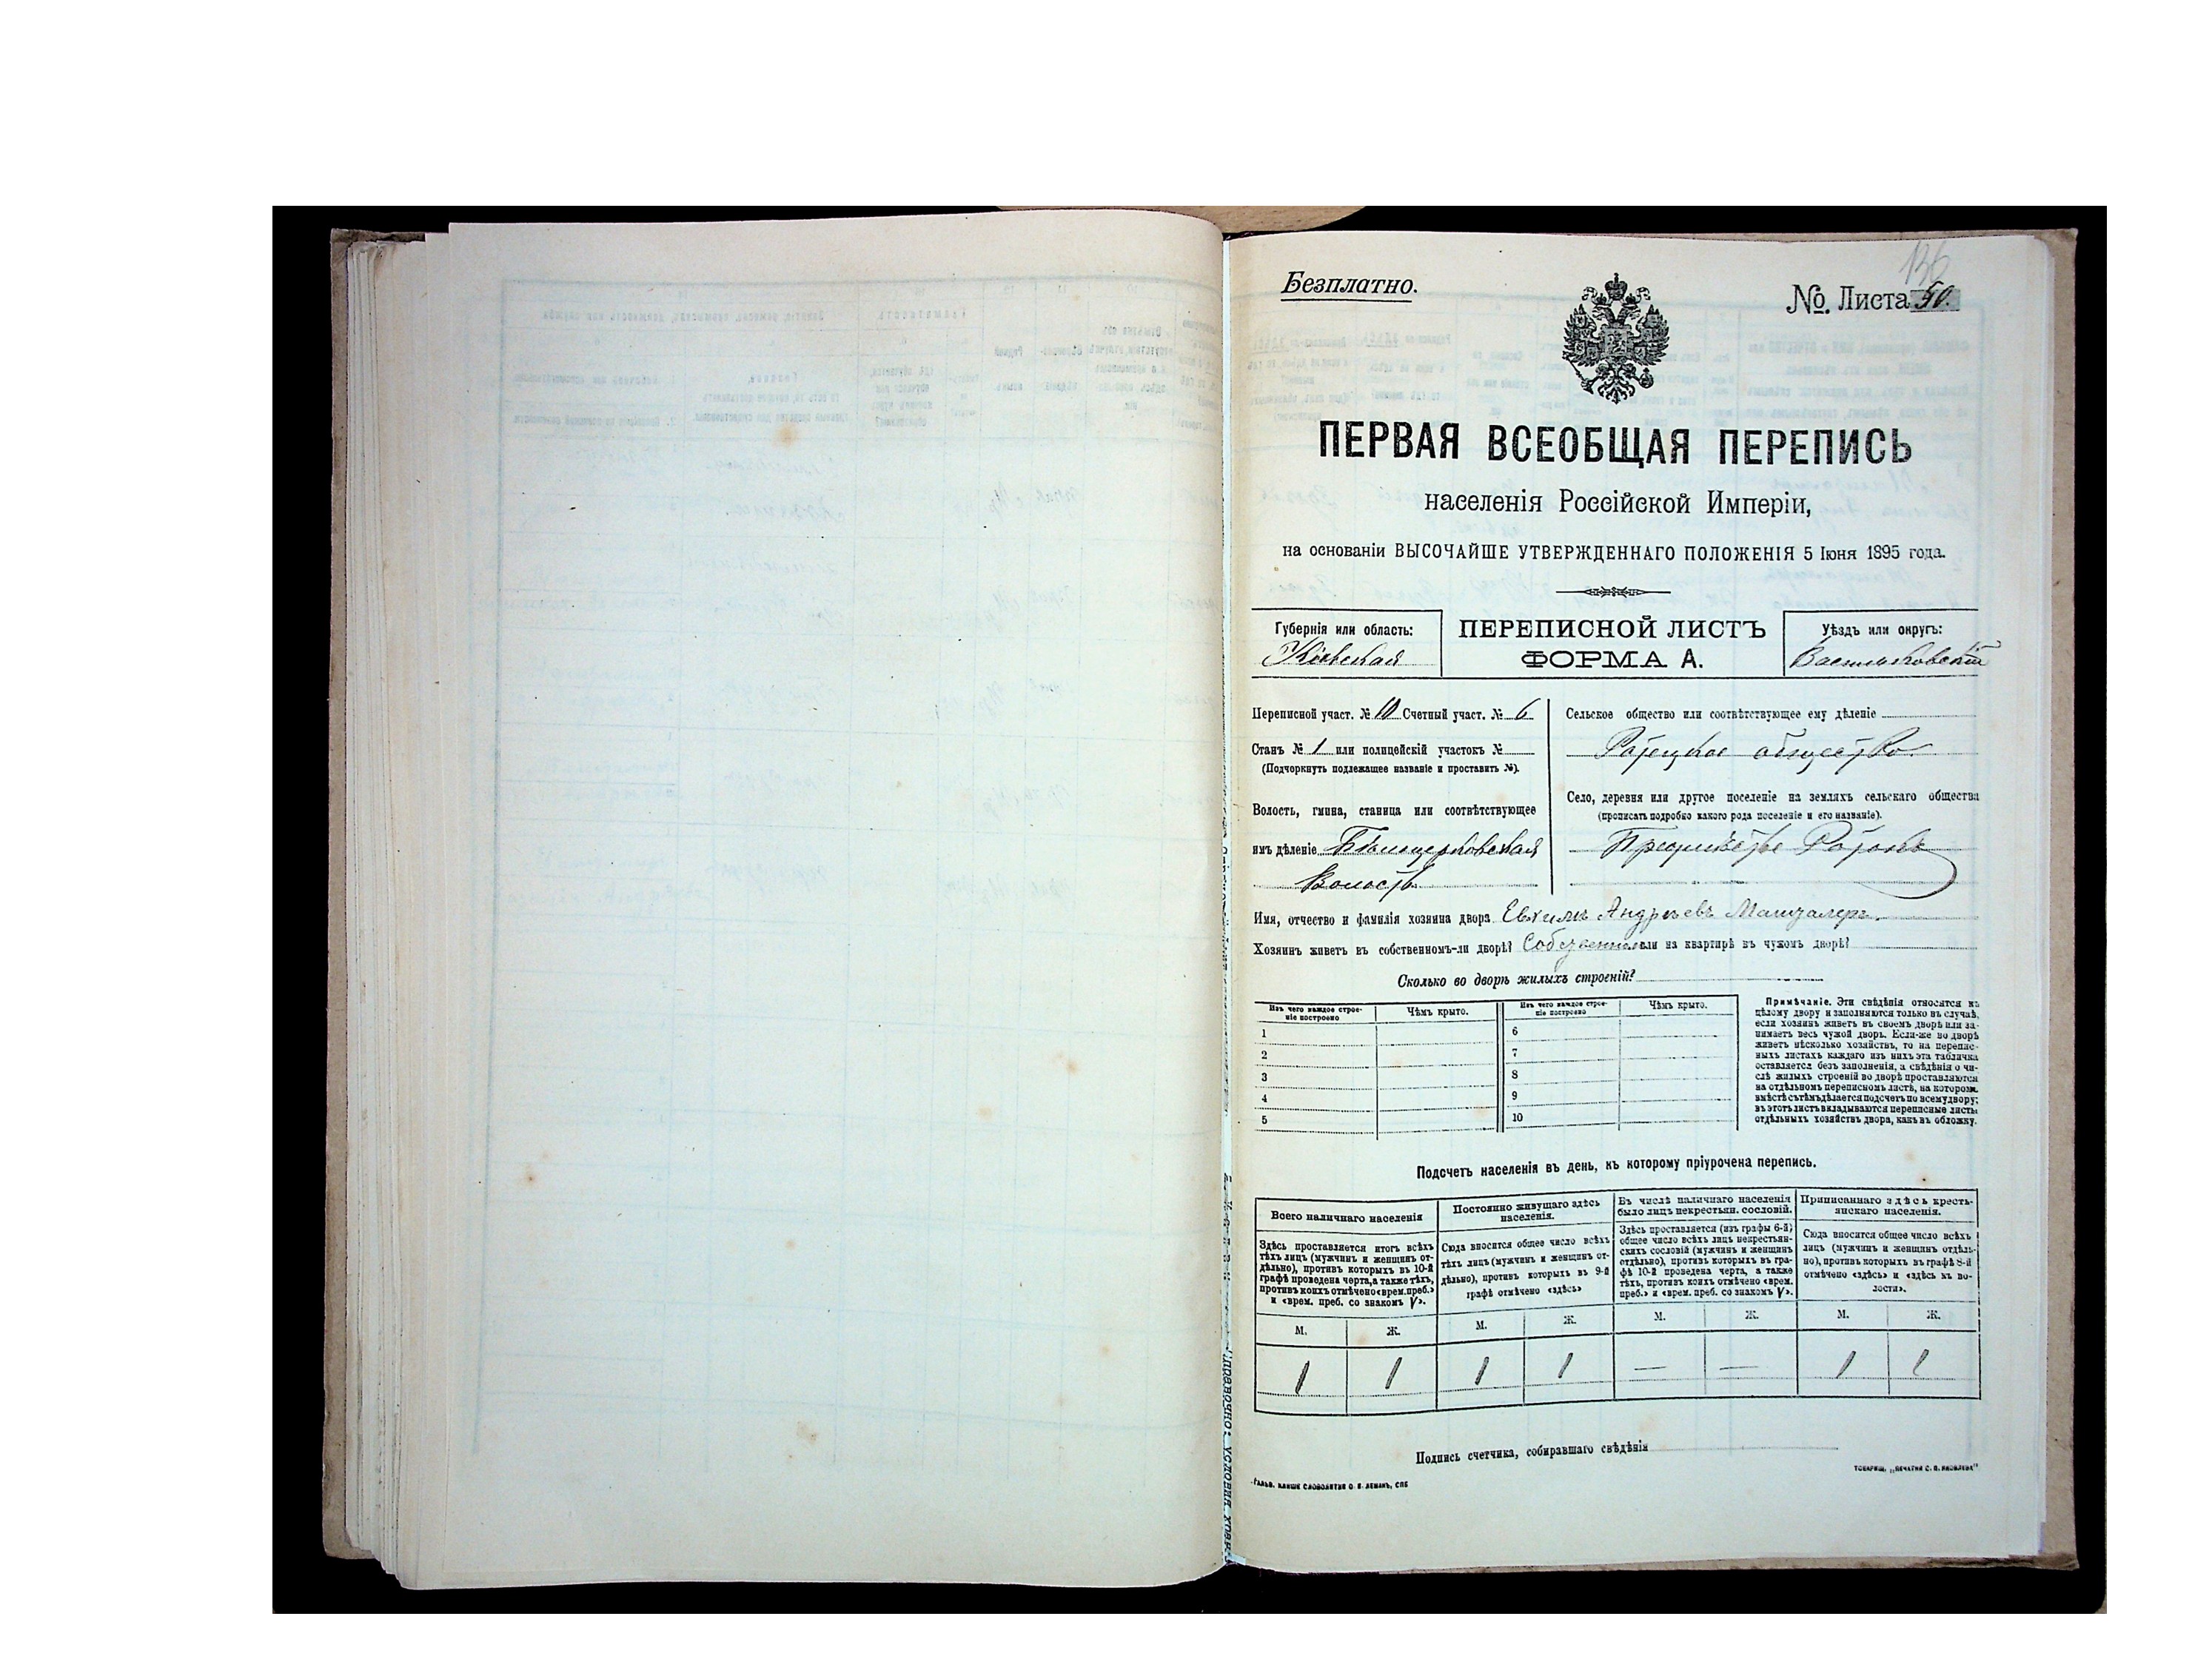 136
Безплатно.
№. Листа 50.
ПЕРВАЯ ВСЕОБЩАЯ ПЕРЕПИСЬ
населенія Россійской Имперіи,
на основаніи ВЫСОЧАЙШЕ УТВЕРЖДЕННАГО ПОЛОЖЕНІЯ 5 Іюня 1895 года.
Губернія или область:
Кіевская
ПЕРЕПИСНОЙ ЛИСТЪ
ФОРМА А.
Уѣздъ или округъ:
Васильковскій
Переписной участ. № 10 Счетный участ. № 6
Станъ № 1 или полицейскій участокъ №
(Подчеркнуть подлежащее названіе и проставить №).
Волость, гмина, станица или соотвѣтствующее
имъ дѣленіе Бѣлоцерковская
Волость
Сельское общество или соотвѣтствующее ему дѣленіе
общество
Село, деревня или другое поселеніе на земляхъ сельскаго общества
(прописать подробно какого рода поселеніе и его названіе).
Предмѣстье Ротокъ
Имя, отчество и фамилія хозяина двора Андрѣевъ
Хозяинъ живетъ въ собственномъ-ли дворѣ? или на квартирѣ въ чужомъ дворѣ?
Сколько во дворѣ жилыхъ строеній?
Изъ чего каждое строе-
ніе построено
Чѣмъ крыто.
Изъ чего каждое строе-
ніе построено
Чѣмъ крыто.
1 6
2 7
3 8
4 9
5 10
Примѣчаніе. Эти свѣдѣнія относятся къ
цѣлому двору и заполняются только въ случаѣ,
если хозяинъ живетъ въ своемъ дворѣ или за-
нимаетъ весь чужой дворъ. Если-же во дворѣ
живетъ нѣсколько хозяйствъ, то на перепис-
ныхъ листахъ каждаго изъ нихъ эта табличка
оставляется безъ заполненія, а свѣдѣнія о чи-
слѣ жилыхъ строеній во дворѣ проставляются
на отдѣльномъ переписномъ листѣ, на которомъ
вмѣстѣ съ тѣмъ дѣлается подсчетъ по всему двору;
въ этотъ листъ вкладываются переписные листы
отдѣльныхъ хозяйствъ двора, какъ въ обложку.
Подсчетъ населенія въ день, къ которому пріурочена перепись.
Всего наличнаго населенія
Здѣсь проставляется итогъ всѣхъ
тѣхъ лицъ (мужчинъ и женщинъ от-
дѣльно), противъ которыхъ въ 10-й
графѣ проведена черта, а также тѣхъ,
противъ коихъ отмѣчено «врем. преб.»
и «врем. преб. со знакомъ V».
Постоянно живущаго здѣсь
населенія.
Сюда вносится общее число всѣхъ
тѣхъ лицъ (мужчинъ и женщинъ от-
дѣльно), противъ которыхъ въ 9-й
графѣ отмѣчено «здѣсь»
Въ числѣ наличнаго населенія
было лицъ некрестьян. сословій.
Здѣсь проставляется (изъ графы 6-й)
общее число всѣхъ лицъ некрестьян-
скихъ сословій (мужчинъ и женщинъ
отдѣльно), противъ которыхъ въ гра-
фѣ 10-й проведена черта, а также
тѣхъ, противъ коихъ отмѣчено «врем.
преб.» и «врем. преб. со знакомъ V».
Приписаннаго здѣсь кресть-
янскаго населенія.
Сюда вносится общее число всѣхъ
лицъ (мужчинъ и женщинъ отдѣль-
но), противъ которыхъ въ графѣ 8-й
отмѣчено «здѣсь» и «здѣсь къ во-
лости».
М. Ж. М. Ж. М. Ж. М. Ж.
1 1 1 1 — — 1 1
Подпись счетчика, собиравшаго свѣдѣнія
ГАЛЬВ. КЛИШЕ СЛОВОЛИТНИ О. И. ЛЕМАНЪ, СПБ
ТОВАРИЩ. „ПЕЧАТНЯ С. П. ЯКОВЛЕВА"